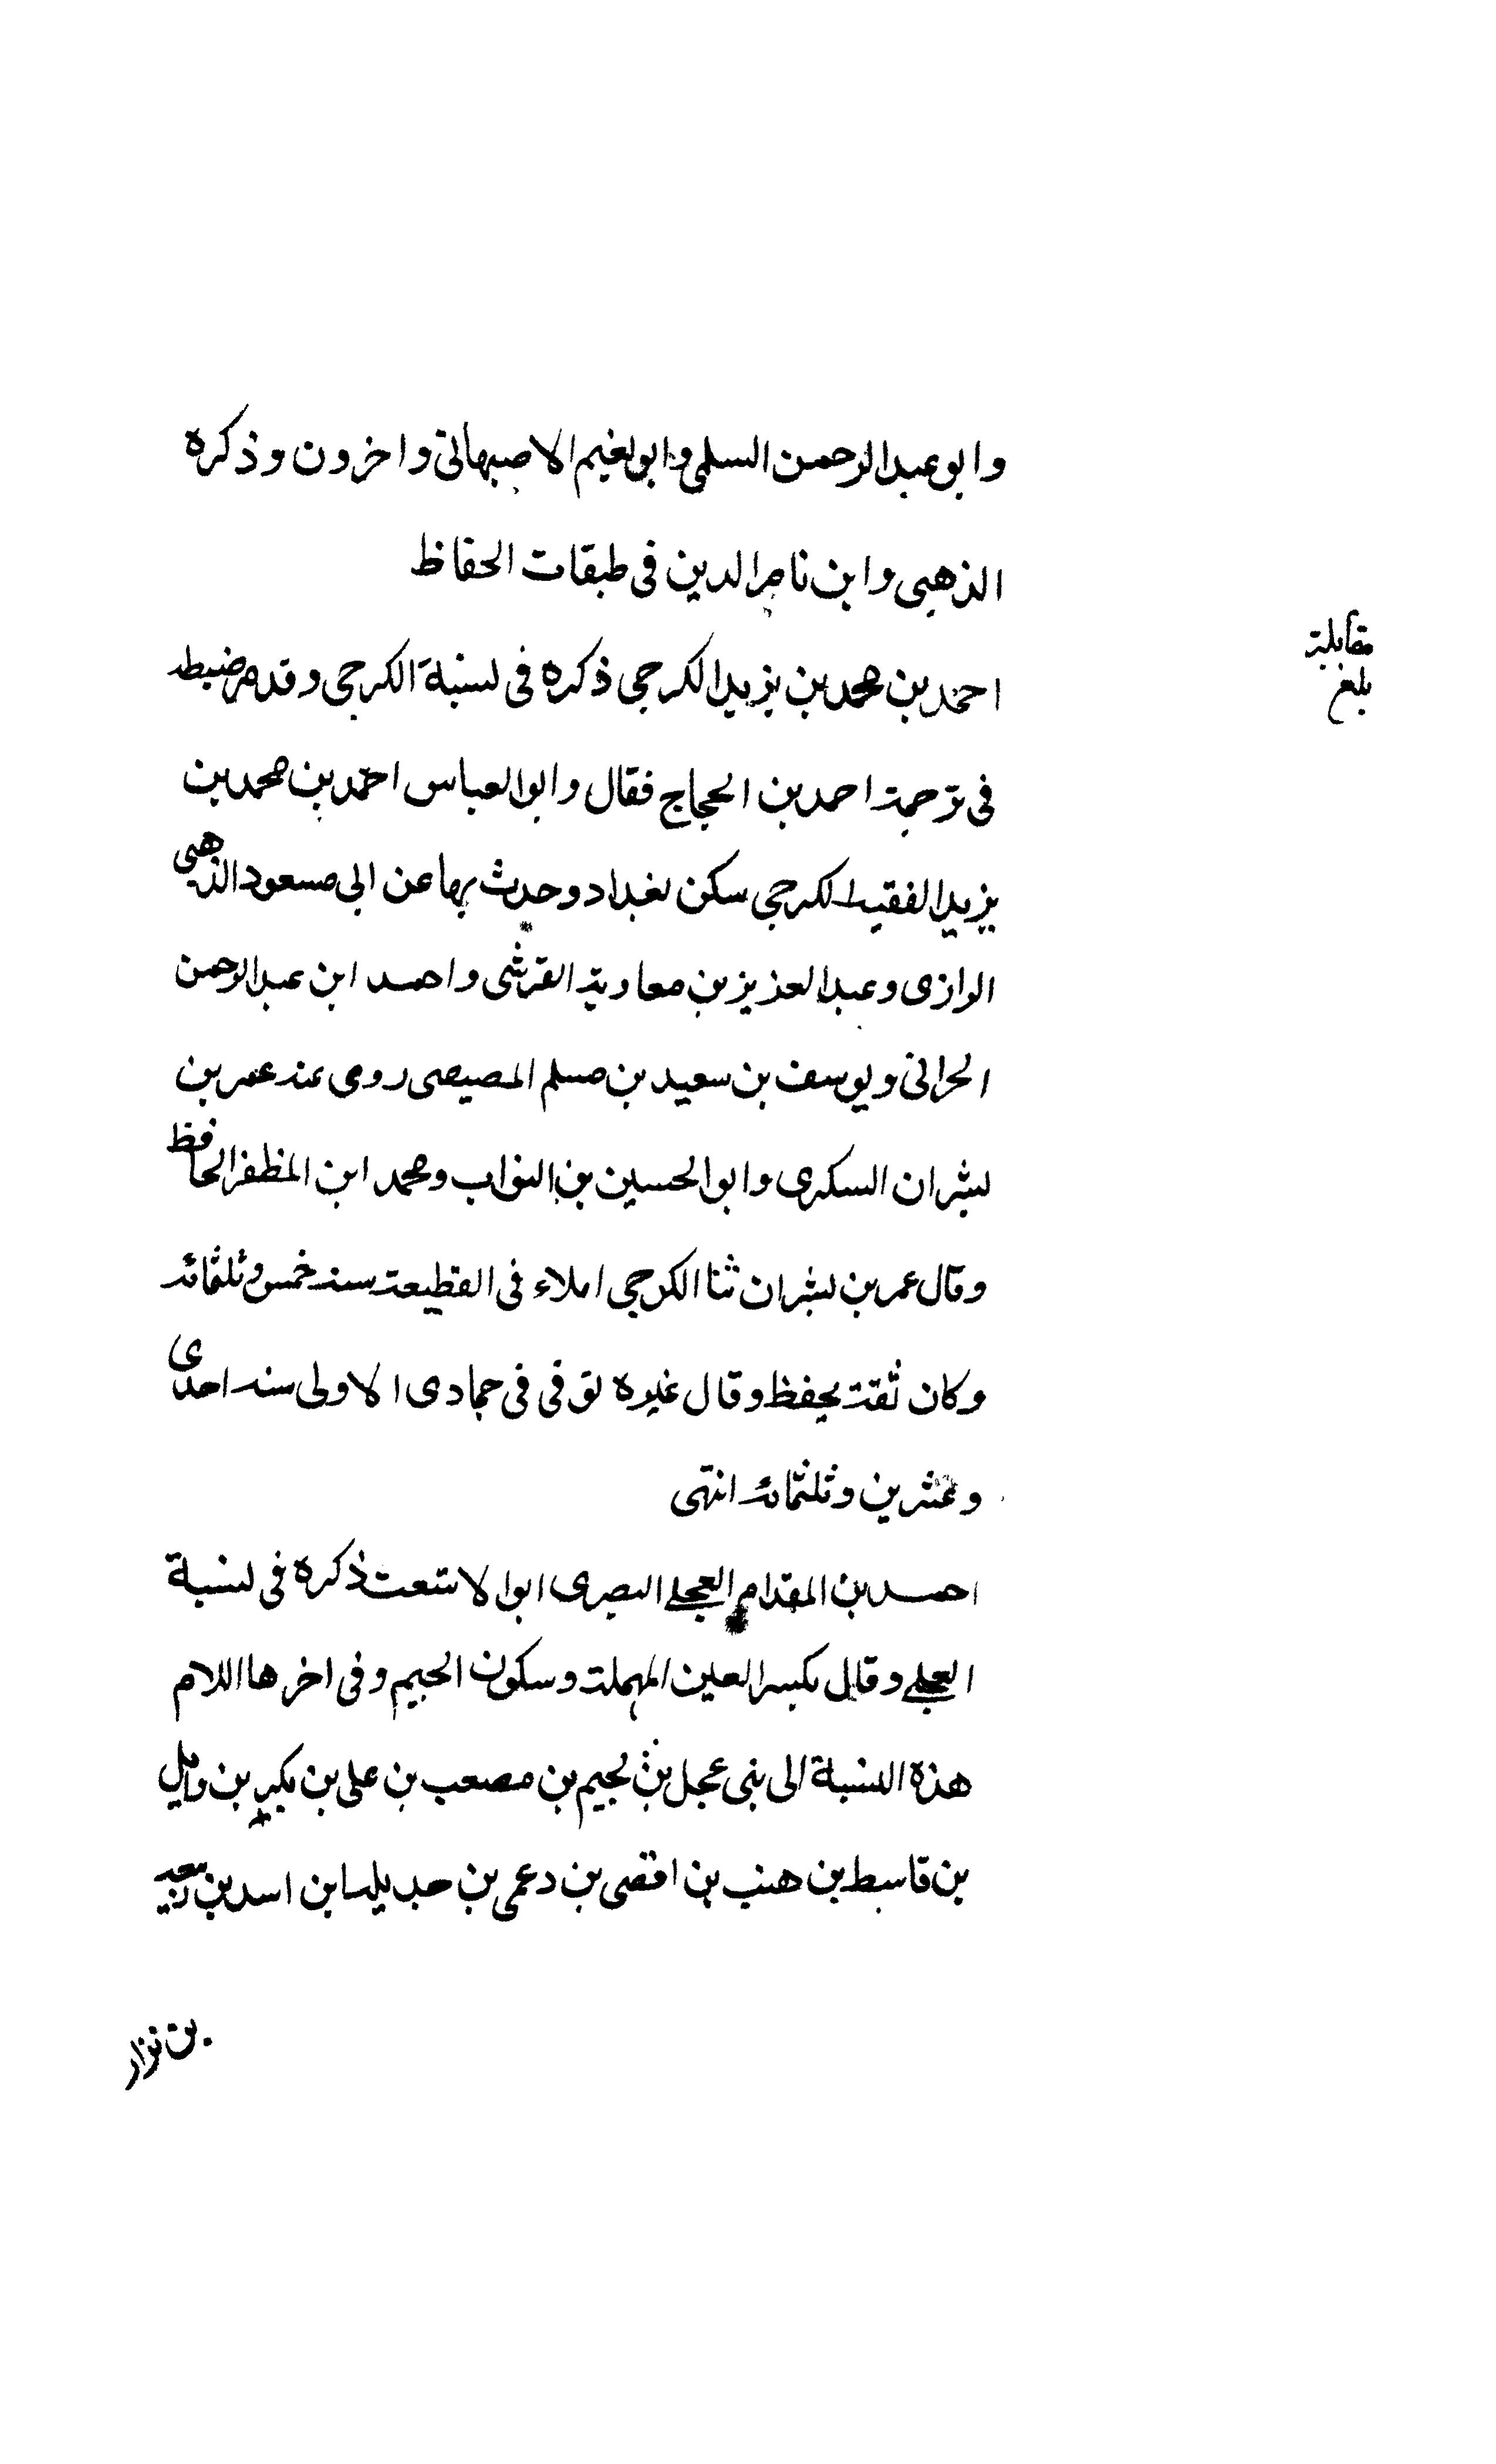 وابو عبد الرحمن السلمى وابو نعيم الاصبهانى واخرون وذكره
الذهبى وابن ناصر الدين فى طبقات الحفاظ
مقابلة
بلغ
احمد بن محمد بن يزيد الكرجى ذكره فى نسبة الكرجى وقد مر ضبطه
فى ترجمة احمد بن الحجاج فقال وابو العباس احمد بن محمد بن
يزيد الفقيه الكرجى سكن بغداد وحدث بها عن ابى مسعود الذهبى
الرازى وعبد العزيز بن معاوية القرشى واحمد ابن عبد الرحمن
الحرانى ويوسف بن سعيد بن مسلم المصيصى روى عنه عمر بن
بشران السكرى وابو الحسين بن البواب ومحمد ابن المظفر الحافظ
وقال عمر بن بشران ثنا الكرجى املاء فى القطيعة سنه خمس وثلثمائه
وكان ثقة يحفظ وقال غيره توفى فى جمادى الاولى سنه احدى
وعشرين وثلثمائه انتهى
احمد بن المقدام العجلے البصرى ابو الاشعث ذكره فى نسبة
العجلے وقال بكسر العين المهملة وسكون الجيم وفى اخرها اللام
هذه النسبة الى بنى عجل بن لجيم بن مصعب بن على بن بكير بن وايل
بن قاسط بن هنب بن افصى بن دعمى بن جديله ابن اسد بن ربيعه
بن نزار